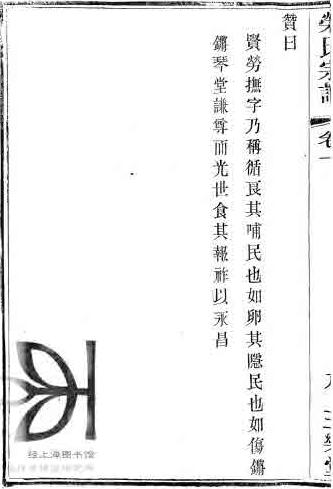 榮氏宗譜 卷一
九 三樂堂
贊曰
賢勞撫字乃稱循良其哺民也如卵其隱民也如傷鏘
鏘琴堂謙尊而光世食其報祚以永昌
经上海图书馆